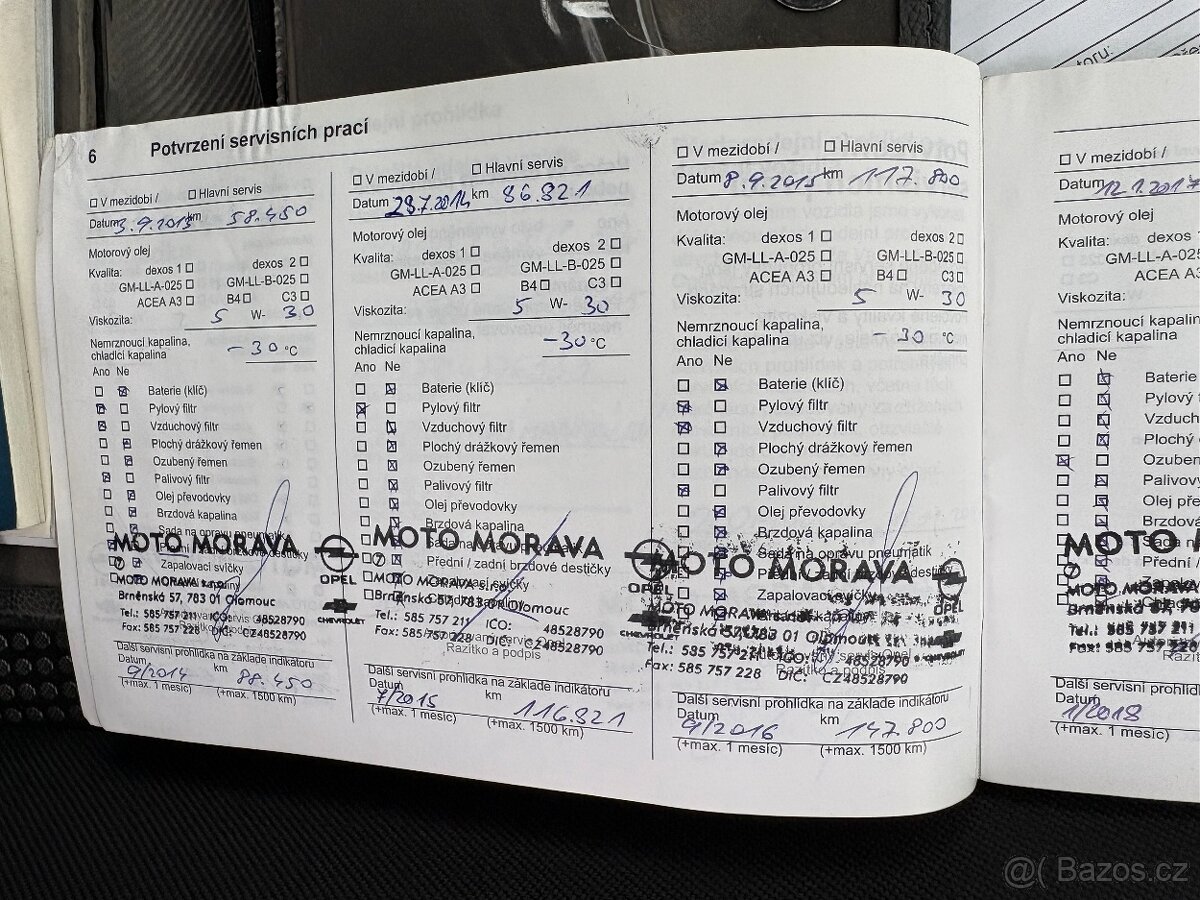 6 Potvrzení servisních prací
V mezidobí / Hlavní servis
Datum 3.9.2013 km 58.450
Motorový olej
Kvalita: dexos 1 dexos 2
GM-LL-A-025 GM-LL-B-025
ACEA A3 B4 C3
Viskozita: 5 W- 30
Nemrznoucí kapalina,
chladicí kapalina -30 °C
Ano Ne
Baterie (klíč)
Pylový filtr
Vzduchový filtr
Plochý drážkový řemen
Ozubený řemen
Palivový filtr
Olej převodovky
Brzdová kapalina
Sada na opravu pneumatik
MOTO MORAVA
Zapalovací svíčky
MOTO MORAVA s.r.o.
OPEL
Brněnská 57, 783 01 Olomouc
Tel.: 585 757 211 IČO: 48528790
CHEVROLET
Fax: 585 757 228 DIČ: CZ48528790
Další servisní prohlídka na základě indikátoru
Datum 9/2014 km 88.450
(+max. 1 měsíc) (+max. 1500 km)
V mezidobí / Hlavní servis
Datum 28.7.2014 km 86.821
Motorový olej
Kvalita: dexos 1 dexos 2
GM-LL-A-025 GM-LL-B-025
ACEA A3 B4 C3
Viskozita: 5 W- 30
Nemrznoucí kapalina,
chladicí kapalina -30 °C
Ano Ne
Baterie (klíč)
Pylový filtr
Vzduchový filtr
Plochý drážkový řemen
Ozubený řemen
Palivový filtr
Olej převodovky
Brzdová kapalina
MOTO MORAVA
Přední / zadní brzdové destičky
Zapalovací svíčky
MOTO MORAVA s.r.o.
OPEL
Brněnská 57, 783 01 Olomouc
Tel.: 585 757 211 IČO: 48528790
CHEVROLET
Fax: 585 757 228 DIČ: CZ48528790
Razítko a podpis
Další servisní prohlídka na základě indikátoru
Datum 7/2015 km 116.821
(+max. 1 měsíc) (+max. 1500 km)
V mezidobí / Hlavní servis
Datum 8.9.2015 km 117.800
Motorový olej
Kvalita: dexos 1 dexos 2
GM-LL-A-025 GM-LL-B-025
ACEA A3 B4 C3
Viskozita: 5 W- 30
Nemrznoucí kapalina,
chladicí kapalina -30 °C
Ano Ne
Baterie (klíč)
Pylový filtr
Vzduchový filtr
Plochý drážkový řemen
Ozubený řemen
Palivový filtr
Olej převodovky
Brzdová kapalina
Sada na opravu pneumatik
MOTO MORAVA
Zapalovací svíčky
OPEL
MOTO MORAVA
Brněnská 57, 783 01 Olomouc
Tel.: 585 757 211 IČO: 48528790
Razítko a podpis
Fax: 585 757 228 DIČ: CZ48528790
Další servisní prohlídka na základě indikátoru
Datum 9/2016 km 147.800
(+max. 1 měsíc) (+max. 1500 km)
V mezidobí /
Datum 12.1.2017
Motorový olej
Kvalita: dexos
GM-LL-A-02
ACEA A3
Viskozita:
Nemrznoucí kapalin
chladicí kapalina
Ano Ne
Baterie
Pylový f
Vzduch
Plochý
Ozuben
Palivov
Olej pře
Brzdov
Sada n
MOTO M
Brněnská 57, 783
Tel.: 585 757 211
Fax: 585 757 228
Razítk
Další servisní prohlíd
Datum
1/2018
(+max. 1 měsíc)
@( Bazos.cz